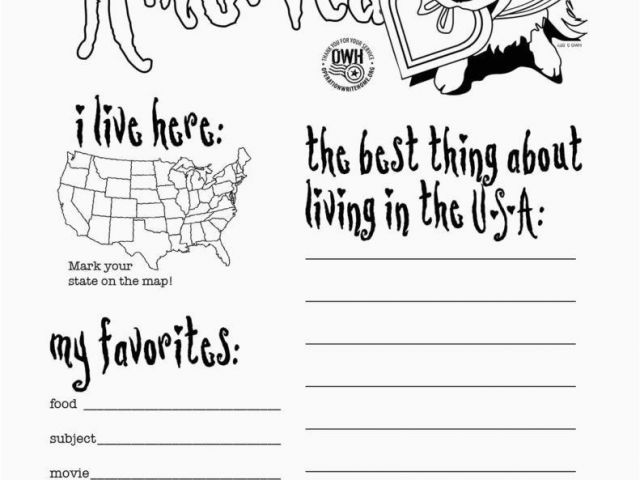 THANK YOU FOR YOUR SERVICE
OWH
OPERATIONWRITEHOME.ORG
i live here:
Mark your
state on the map!
my favorites:
food
subject
movie
the best thing about
living in the U.S.A: